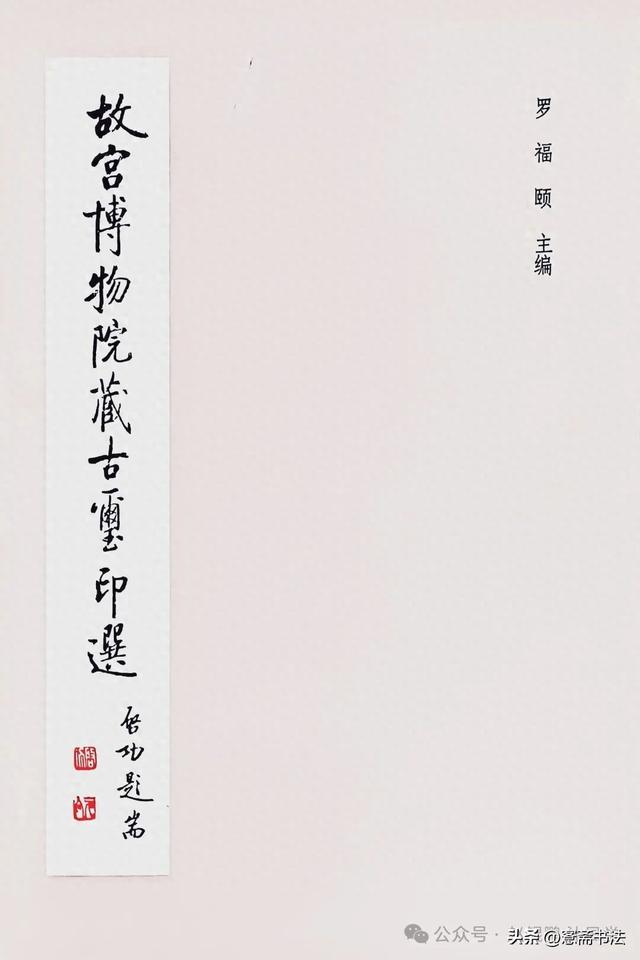 罗福颐 主编
故宫博物院藏古璽印選
启功题耑
公众号
头条 @窓斋书法